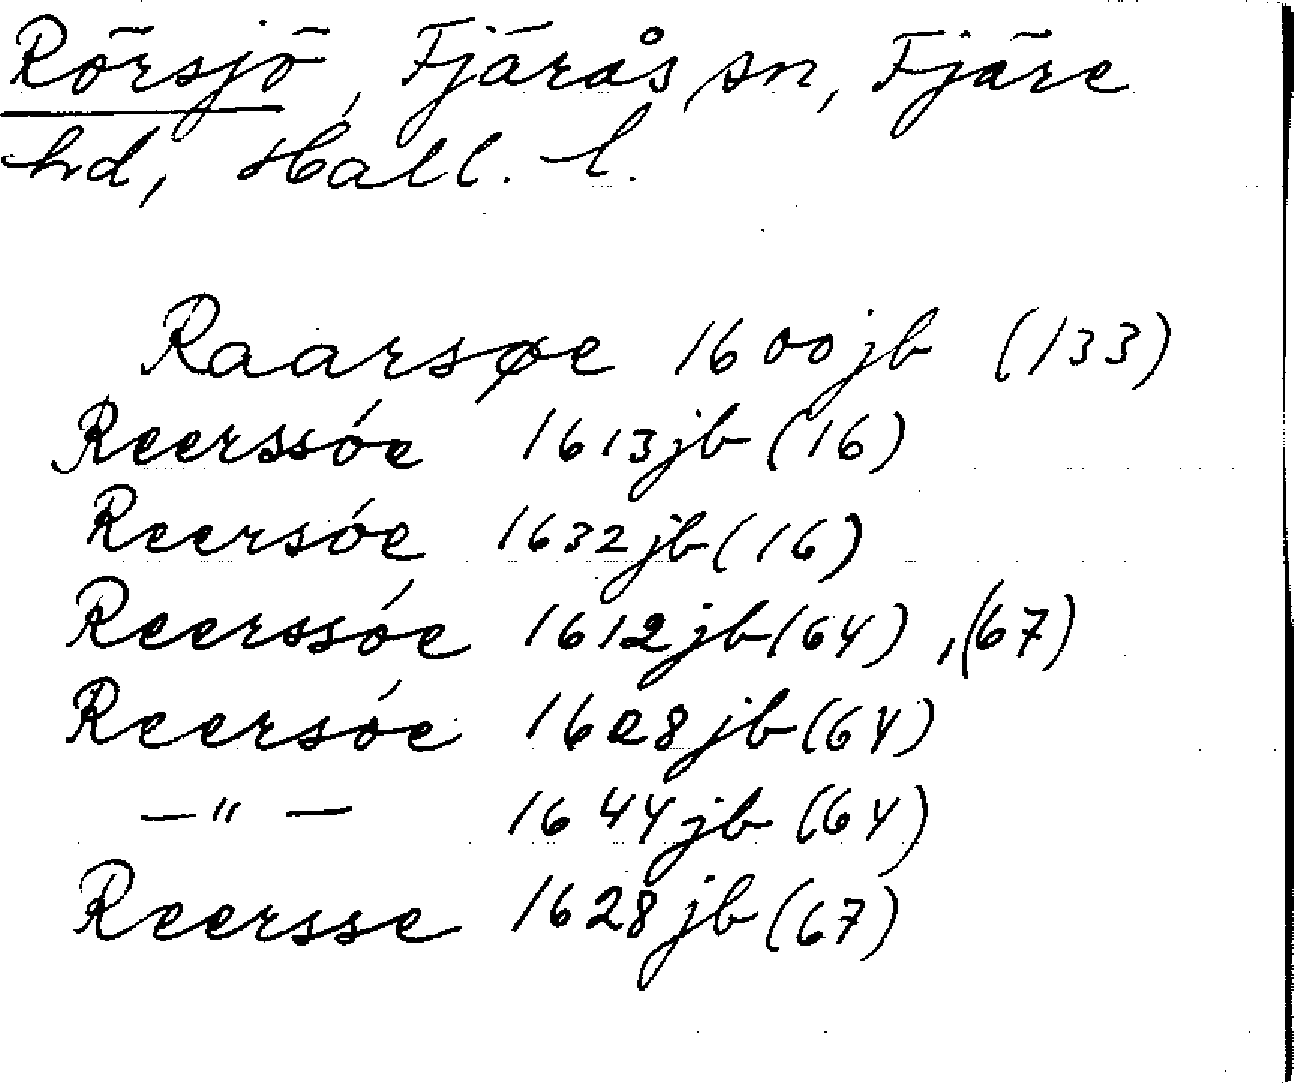 Rörsjö, Fjärås sn, Fjäre
hd, Hall. l.
Raarsøe 1600 jb (133)
Reerssóe 1613 jb (16)
Reersóe 1632 jb (16)
Reerssóe 1612 jb (64), (67)
Reersóe 1628 jb (64)
—"— 1644 jb (64)
Reersse 1628 jb (67)